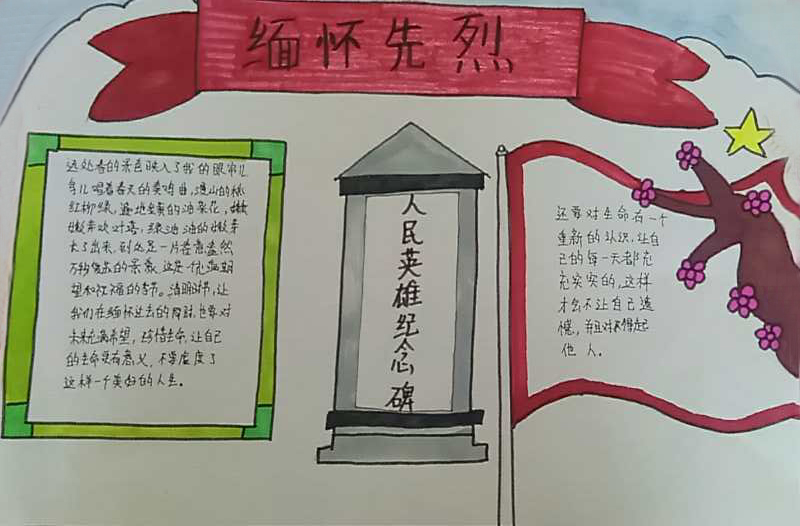 缅怀先烈
远处春的景色映入了我的眼帘儿
鸟儿唱着春天的奏鸣曲，漫山的桃
红柳绿，遍地金黄的油菜花，
绿油油的
长了出来，到处是一片春意盎然
万物复苏的景象，这是一个充满期
望和祝福的季节。清明时节，让
我们在缅怀过去的同时，也要对
未来充满希望，珍惜生命，让自己
的生命更有意义，不要虚度了
这样一个美好的人生。
人民英雄纪念碑
还要对生命有一个
重新的认识，让自
己的每一天都充
充实实的，这样
才会不让自己遗
憾，并且对得起
他人。